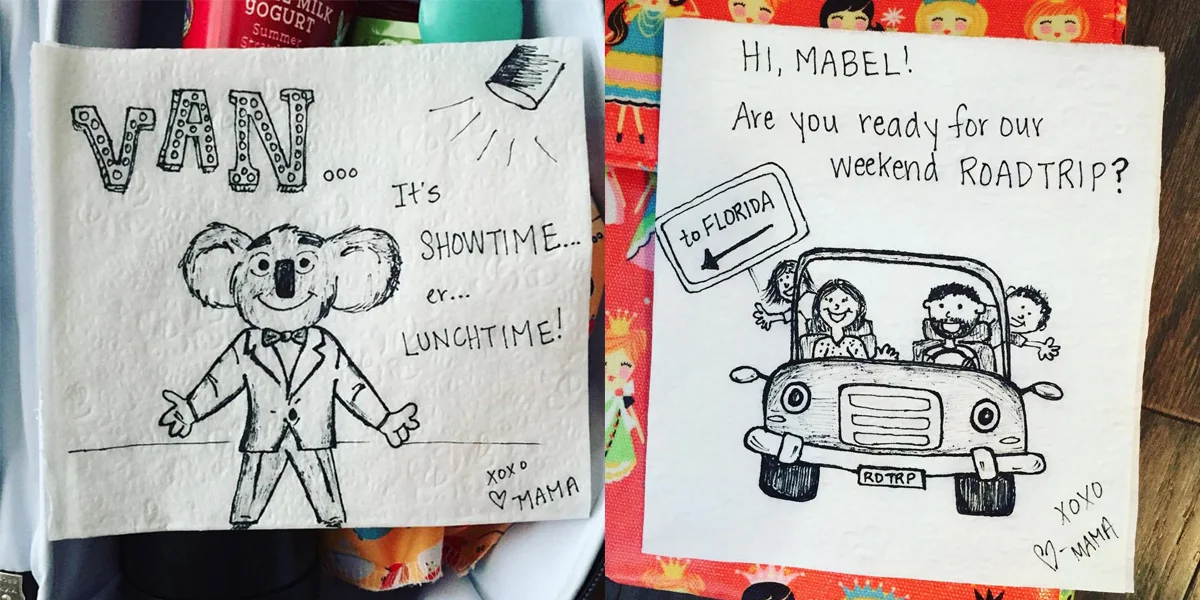 MILK
YOGURT
Summer
VAN...
It's
SHOWTIME...
er...
LUNCHTIME!
XOXO
♡ MAMA
HI, MABEL!
Are you ready for our
weekend ROADTRIP?
to FLORIDA
RDTRP
XOXO
♡-MAMA